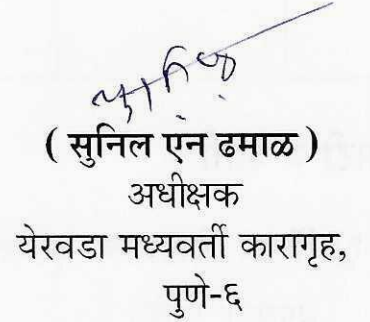 ( सुनिल एन ढमाळ )
अधीक्षक
येरवडा मध्यवर्ती कारागृह,
पुणे-६